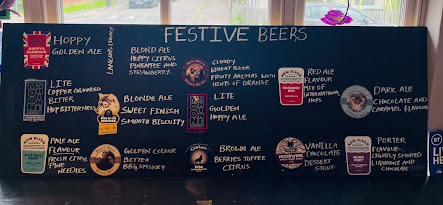 FESTIVE BEERS
HOPPY
GOLDEN ALE
BLOND ALE
HOPPY CITRUS
PINEAPPLE AND
STRAWBERRY.
CLOUDY
WHEAT BEER
FRUITY AROMAS WITH
HINTS OF ORANGE
RED ALE
FLAVOUR
MIX OF
INTERNATIONAL
HOPS
DARK ALE
CHOCOLATE AND
CARAMEL FLAVOUR
LITE
COPPER COLOURED
BITTER
HOP BITTERNESS
BLONDE ALE
SWEET FINISH
SMOOTH BISCUITY
LITE
GOLDEN
HOPPY ALE
PALE ALE
FLAVOUR
FRESH CITRUS
PINE
NEEDLES
GOLDEN COLOUR
BITTER
BBQ SMOKEY
BROWN ALE
BERRIES TOFFEE
CITRUS
VANILLA
CHOCOLATE
DESSERT
STOUT
PORTER
FLAVOUR-
LIGHTLY SMOKED
LIQUORICE AND
CHOCOLATE